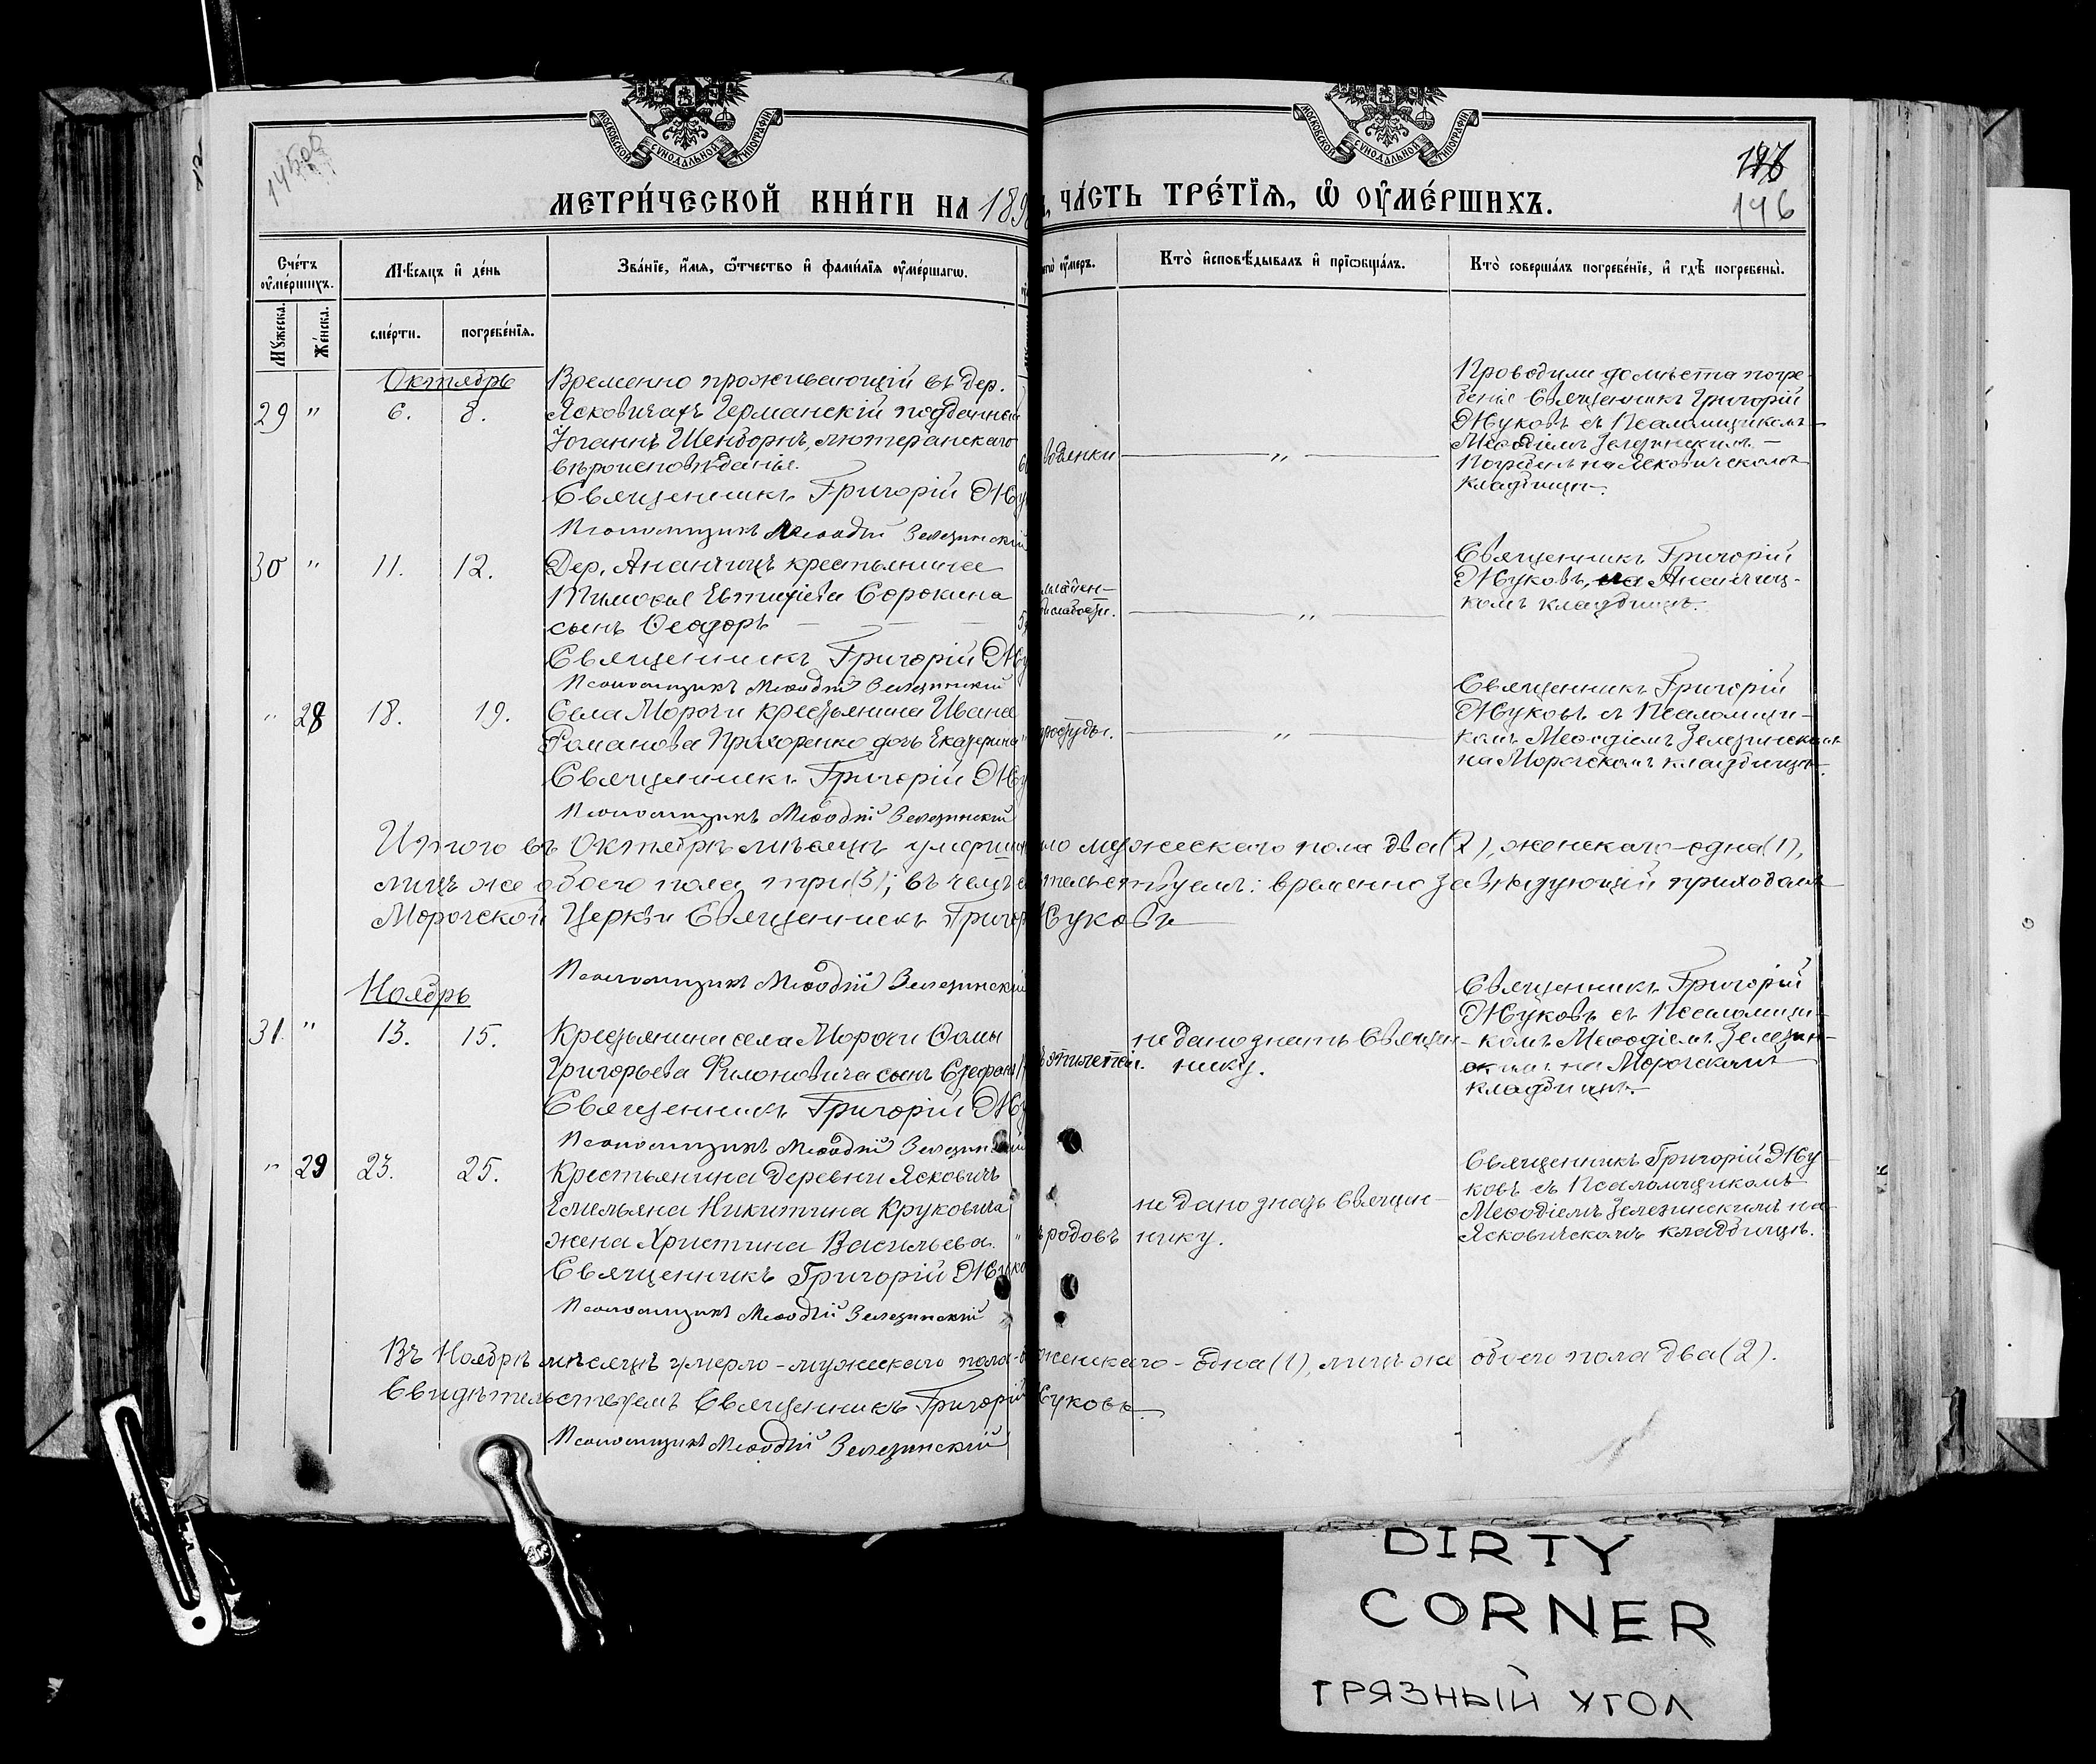 МОСКОВСКОЙ СѴНОДАЛЬНОЙ ТИПОГРАФІИ
МОСКОВСКОЙ СѴНОДАЛЬНОЙ ТИПОГРАФІИ
146
МЕТРИ́ЧЕСКОЙ КНИ́ГИ НА 189
ЧА́СТЬ ТРЕ́ТЇѦ, Ѽ ОУ҆МЕ́РШИХЪ.
Сче́тъ оу҆ме́ршихъ.
Мѣ́сяцъ и҆ де́нь
Зва́нїе, и҆́мѧ, ѻ҆́тчество и҆ фами́лїѧ оу҆ме́ршагѡ.
оу҆́меръ.
Кто̀ и҆сповѣ́дывалъ и҆ прїѡбща́лъ.
Кто̀ соверша́лъ погребе́нїе, и҆ гдѣ̀ погребены̀.
Мꙋ́жеска.
Же́нска.
сме́рти.
погребе́нїѧ.
Октябрь
29 " 6. 8.
Временно проживающій въ дер.
Ясковичахъ Германскій подданный
Іоганнъ Шенборнъ, лютеранскаго
вѣроисповѣданія.
Священникъ Григорій Жу
Псаломщикъ Меѳодій Зелезинскій
водянки
"
Проводили до мѣста погре-
бенія Священникъ Григорій
Жуковъ съ Псаломщикомъ
Меѳодіемъ Зелезинскимъ. –
Погребенъ на Ясковичскомъ
кладбищѣ.
30 " 11. 12.
Дер. Ананчицъ крестьянина
Тимоѳея Евтихіева Сорокина
сынъ Ѳеодоръ
Священникъ Григорій Жу
Псаломщикъ Меѳодій Зелезинскій
слабости.
"
Священникъ Григорій
Жуковъ, на Ананчиц-
комъ кладбищѣ.
" 28 18. 19.
Села Морочи крестьянина Ивана
Романова Прохоренко дочь Екатерина
Священникъ Григорій Жу
Псаломщикъ Меѳодій Зелезинскій
простуды.
"
Священникъ Григорій
Жуковъ съ Псаломщи-
комъ Меѳодіемъ Зелезинскимъ
на Морочскомъ кладбищѣ.
Итого въ Октябрѣ мѣсяцѣ умерло мужескаго пола два (2), женскаго – одна (1),
лицъ же обоего пола три (3); въ чемъ свидѣтельствуемъ: временно завѣдующій приходомъ
Морочской Церкви Священникъ Григорій Жуковъ
Псаломщикъ Меѳодій Зелезинскій
Ноябрь
31 " 13. 15.
Крестьянина села Морочи Ѳомы
Григорьева Филоновича сынъ Стефанъ
Священникъ Григорій Жу
Псаломщикъ Меѳодій Зелезинскій
не дано знать Священ-
нику.
Священникъ Григорій
Жуковъ съ Псаломщи-
комъ Меѳодіемъ Зелезин-
скимъ на Морочскомъ
кладбищѣ.
" 29 23. 25.
Крестьянина деревни Ясковичъ
Емельяна Никитина Круковича
жена Христина Васильева.
Священникъ Григорій Жуко
Псаломщикъ Меѳодій Зелезинскій
родовъ
не дано знать Священ-
нику.
Священникъ Григорій Жу
ковъ съ Псаломщикомъ
Меѳодіемъ Зелезинскимъ на
Ясковичскомъ кладбищѣ.
Въ Ноябрѣ мѣсяцѣ умерло – мужескаго пола – женскаго – одна (1), лицъ же обоего пола два (2).
Свидѣтельствуемъ Священникъ Григорій Жуковъ
Псаломщикъ Меѳодій Зелезинскій
DIRTY
CORNER
ГРЯЗНЫЙ УГОЛ